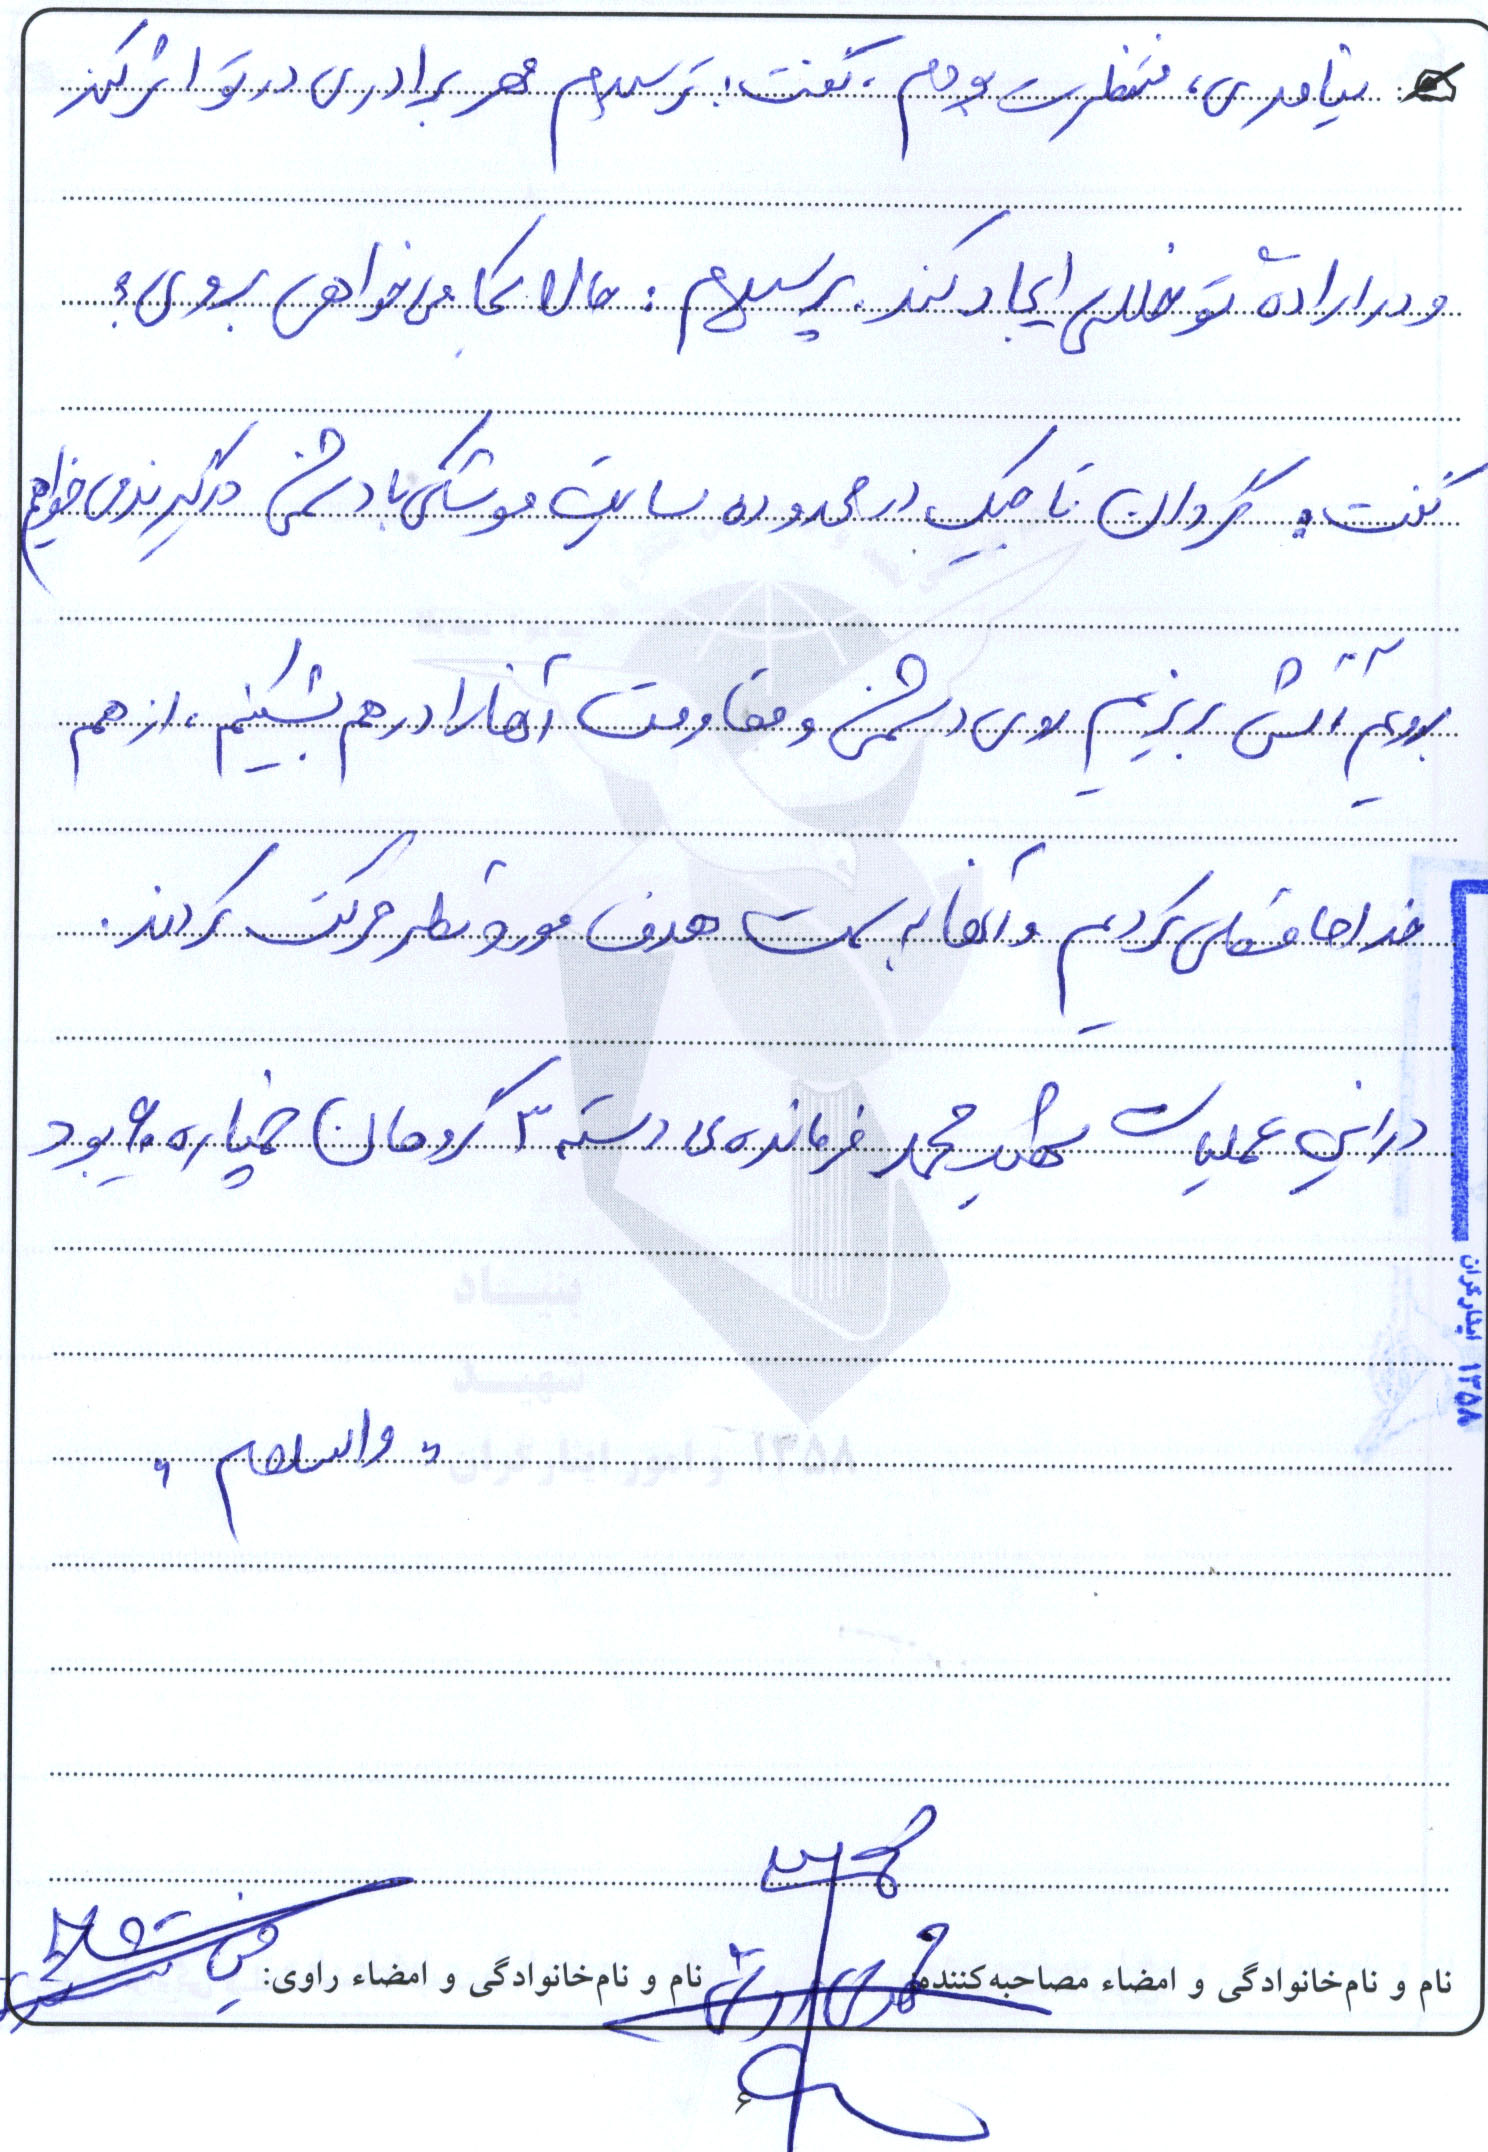 نیامدی، منتظرت بودم، گفت: ترسیدم مهر برادری در تو اثر کند
و در اراده تو خللی ایجاد کند. پرسیدم: حالا کجا می‌خواهی بروی؟
گفت: گردان تاجیک در محدوده سایت موشکی با دشمن درگیرند می‌خواهم
برویم آتش بریزیم روی دشمن و مقاومت آنها را درهم بشکنیم، از هم
خداحافظی کردیم و آنها به سمت هدف مورد نظر حرکت کردند.
در این عملیات شهید محمد فرمانده‌ی دسته ۳ گروهان خمپاره ۶۰ بود
"والسلام"
بنیاد
شهید
و امور ایثارگران ۱۳۵۸
ایثارگران ۱۳۵۸
نام و نام‌خانوادگی و امضاء مصاحبه‌کننده: نام و نام‌خانوادگی و امضاء راوی:
۶